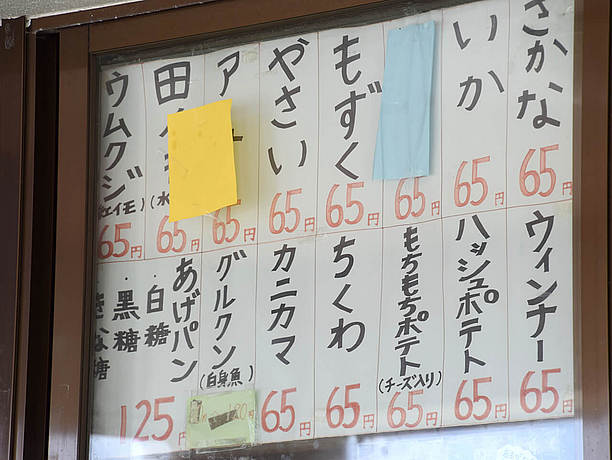 さかな
65円
いか
65円
65円
もずく
65円
やさい
65円
ア
65円
田
(水
65円
ウムクジ
(紅イモ)
65円
ウィンナー
65円
ハッシュポテト
65円
もちもちポテト
(チーズ入り)
65円
ちくわ
65円
カニカマ
65円
グルクン
(白身魚)
あげパン
・白糖
・黒糖
きな糖
125円